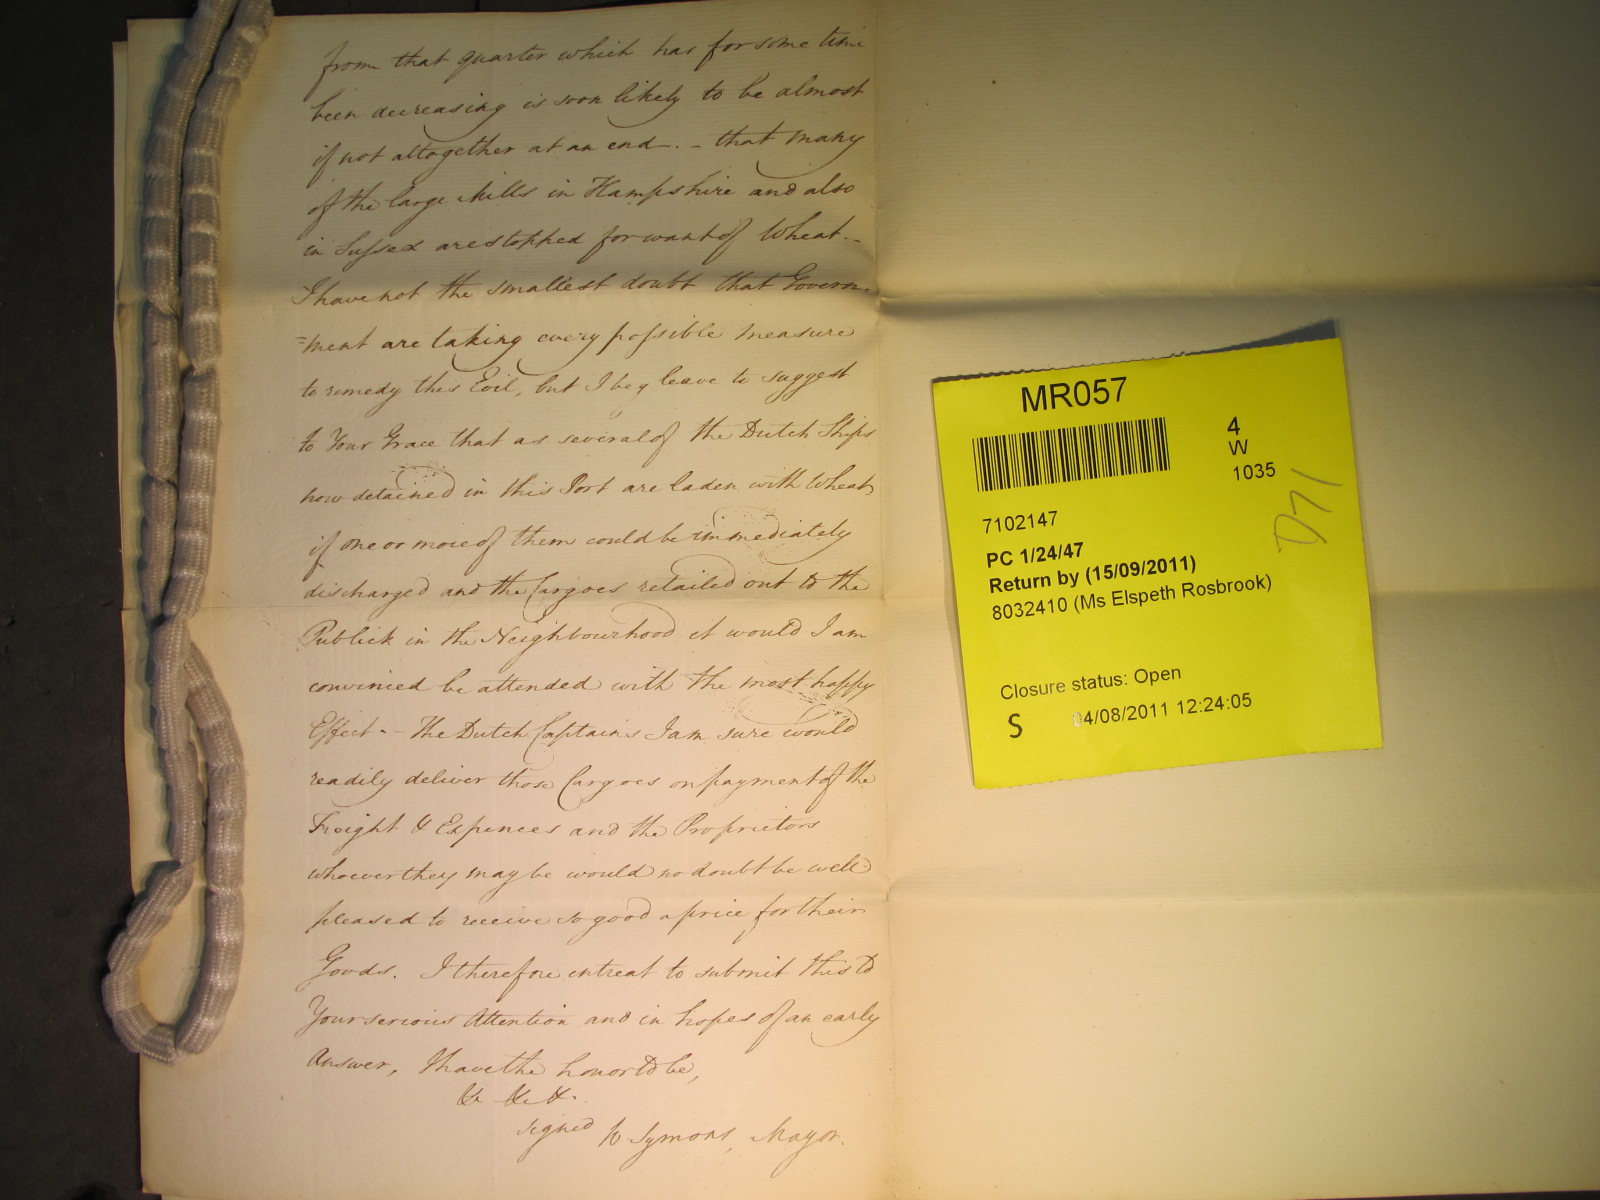 from that quarter which has for some time
been decreasing is soon likely to be almost
if not altogether at an end. - that many
of the large Mills in Hampshire and also
in Sussex are stopped for want of Wheat. -
I have not the smallest doubt that Govern-
=ment are taking every possible measure
to remedy this Evil, but I beg leave to suggest
to Your Grace that as several of the Dutch Ships
now detained in this Port are laden with Wheat,
if one or more of them could be immediately
discharged and the Cargoes retailed out to the
Publick in the Neighbourhood it would I am
convinced be attended with the most happy
Effect. - The Dutch Captains I am sure would
readily deliver those Cargoes on payment of the
Freight & Expences and the Proprietors
whoever they may be would no doubt be well
pleased to receive so good a price for their
Goods. I therefore entreat to submit this to
Your serious Attention and in hopes of an early
Answer, I have the honor to be,
&c &c &.
signed W Symons, Mayor.
MR057
4
W
1035
D71
7102147
PC 1/24/47
Return by (15/09/2011)
8032410 (Ms Elspeth Rosbrook)
Closure status: Open
S 04/08/2011 12:24:05